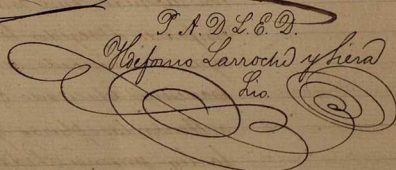 P. A. D. L. E. D.
Yldefonso Larroche y Siera
Lio.